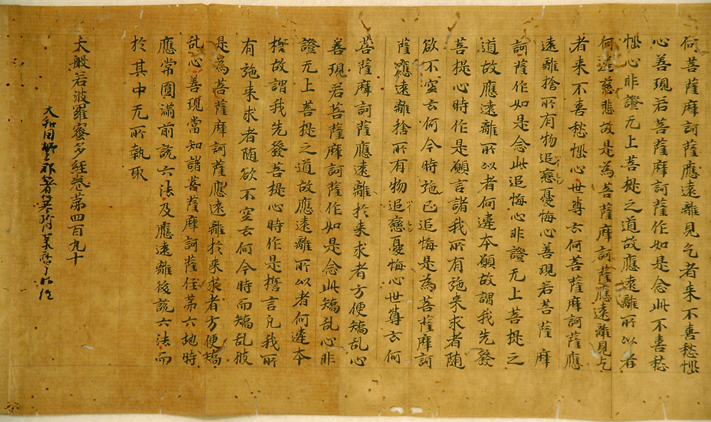 何菩薩摩訶薩應遠離見乞者來不喜愁慼
心善現若菩薩摩訶薩作如是念此不喜愁
慼心非證无上菩提之道故應遠離所以者
何違慈悲故是為菩薩摩訶薩應遠離見乞
者來不喜愁慼心世尊云何菩薩摩訶薩應
遠離捨所有物追戀憂悔心善現若菩薩摩
訶薩作如是念此追悔心非證无上菩提之
道故應遠離所以者何違本願故謂我先發
菩提心時作是願言諸我所有施来求者随
欲不空云何今時施已追悔是為菩薩摩訶
薩應遠離捨所有物追戀憂悔心世尊云何
菩薩摩訶薩應遠離於来求者方便矯乱心
善現若菩薩摩訶薩作如是念此矯乱心非
證无上菩提之道故應遠離所以者何違本
誓故謂我先發菩提心時作是誓言凡我所
有施来求者随欲不空云何今時而矯乱彼
是為菩薩摩訶薩應遠離於来求者方便矯
乱心善現當知諸菩薩摩訶薩住第六地時
應常圓滿前說六法及應遠離後說六法而
於其中无所執取
大般若波羅蜜多經卷第四百九十
大和国